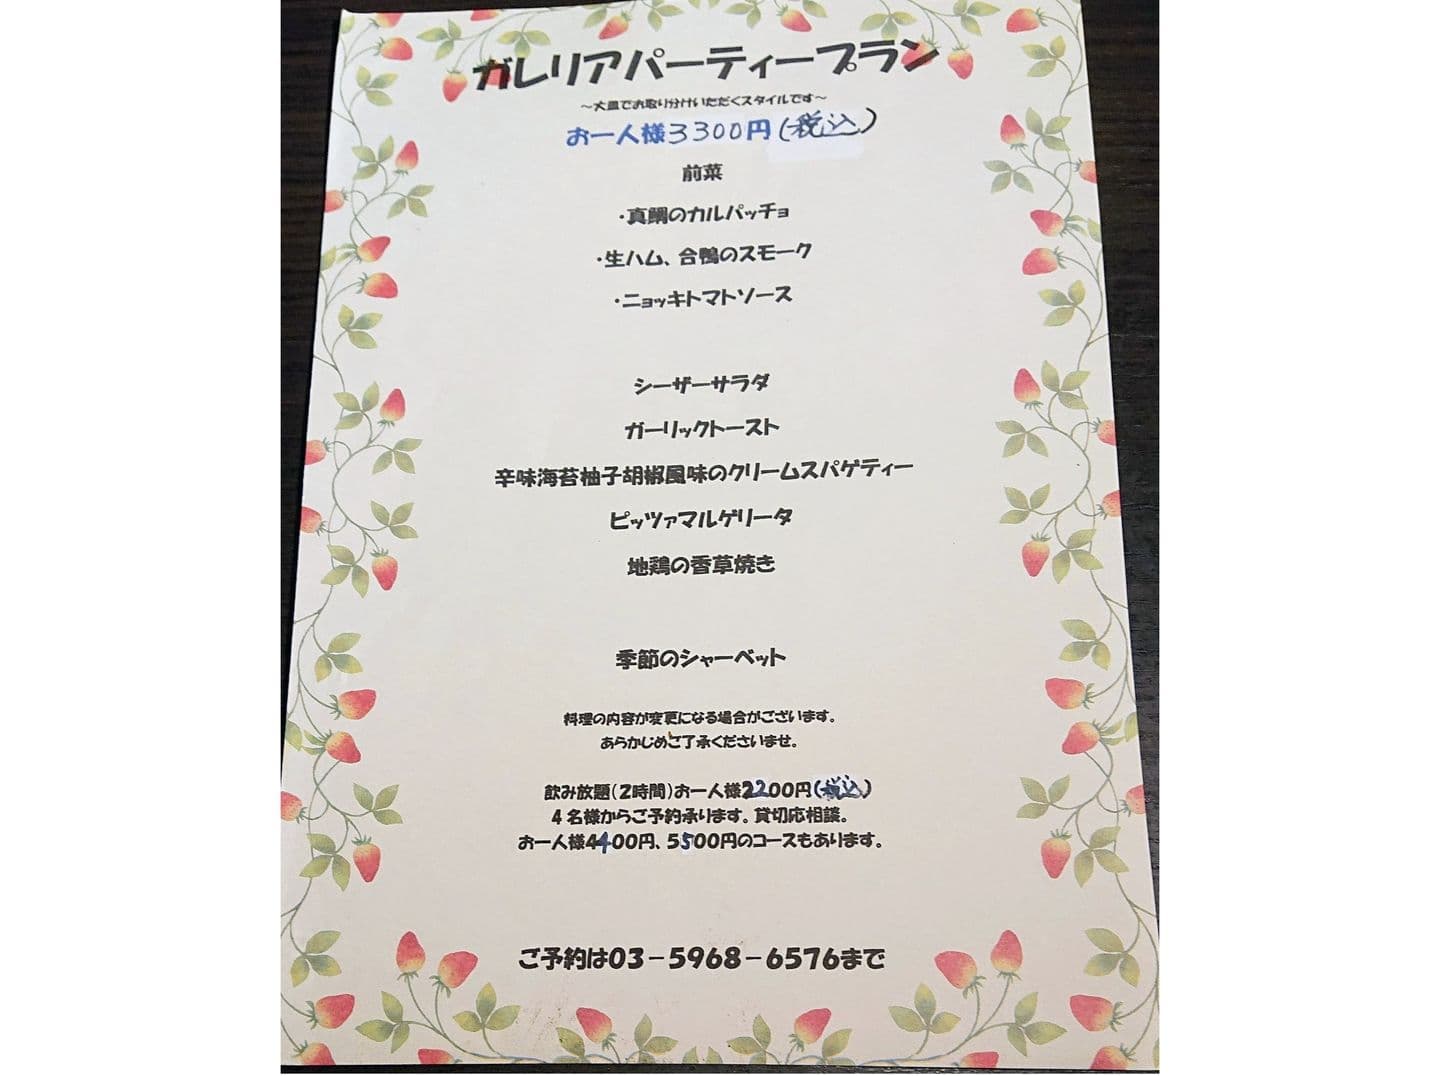 ガレリアパーティープラン
～大皿でお取り分けいただくスタイルです～
お一人様3300円(税込)
前菜
・真鯛のカルパッチョ
・生ハム、合鴨のスモーク
・ニョッキトマトソース
シーザーサラダ
ガーリックトースト
辛味海苔柚子胡椒風味のクリームスパゲティー
ピッツァマルゲリータ
地鶏の香草焼き
季節のシャーベット
料理の内容が変更になる場合がございます。
あらかじめご了承くださいませ。
飲み放題(2時間)お一人様2200円(税込)
4名様からご予約承ります。貸切応相談。
お一人様4400円、5500円のコースもあります。
ご予約は03-5968-6576まで